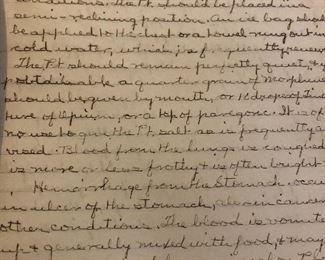 conditions. The Pt should be placed in a
semi-reclining position. An ice bag should
be applied to the chest or a towel wrung out in
cold water, which is frequently renewed
The Pt should remain perfectly quiet, &
possible a quarter grain of morphine
should be given by mouth, or 15 drops of Tinc
ture of Opium, or a tsp of paregoric. It is of
no use to give the Pt salt as is frequently a
vised. Blood from the lungs is coughed
is more or less frothy & is often bright
Hemorrhage from the Stomach. occu
in ulcer of the stomach, also in cancer
other conditions. The blood is vomite
up & generally mixed with food, & may